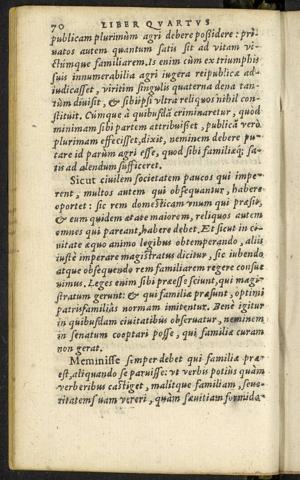 70 LIBER QVARTVS
publicam plurimùm agri debere poßidere: pri-
uatos autem quantum satis sit ad vitam vi-
ctumque familiarem. Is enim cùm ex triumphis
suis innumerabilia agri iugera reipublicæ ad-
iudicasset, viritim singulis quaterna dena tan-
tùm diuisit, & sibiipsi vltra reliquos nihil con-
stituit. Cúmque à quibusdā criminaretur, quòd
minimam sibi partem attribuißet, publicā verò
plurimam effecisset, dixit, neminem debere pu-
tare id parùm agri esse, quod sibi familiæq́; sa-
tis ad alendum sufficeret.
Sicut ciuilem societatem paucos qui impe-
rent, multos autem qui obsequantur, habere
oportet: sic rem domesticam vnum qui præsit,
& eum quidem ætate maiorem, reliquos autem
omnes qui pareant, habere debet. Et sicut in ci-
uitate æquo animo legibus obtemperando, aliis
iustè imperare magistratus dicitur, sic iubendo
atque obsequendo rem familiarem regere consue
uimus. Leges enim sibi præesse sciunt, qui magi-
stratum gerunt: & qui familiæ præsunt, optimi
patrisfamiliâs normam imitentur. Benè igitur
in quibusdam ciuitatibus obseruatur, neminem
in senatum cooptari posse, qui familiæ curam
non gerat.
Meminisse semper debet qui familiæ præ-
est, aliquando se paruisse: vt verbis potiùs quàm
verberibus castiget, malítque familiam, seue-
ritatem suam vereri, quàm sæuitiam formida-